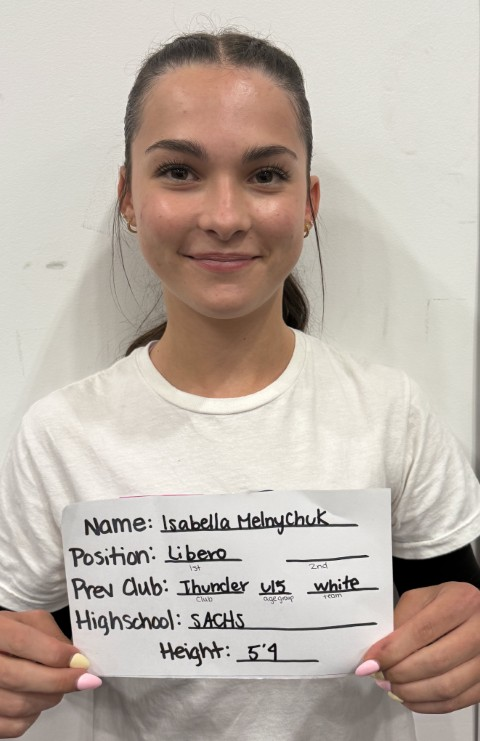 Name: Isabella Melnychuk
Position: Libero
1st 2nd
Prev Club: Thunder U15 White
Club age group team
Highschool: SACHS
Height: 5'4